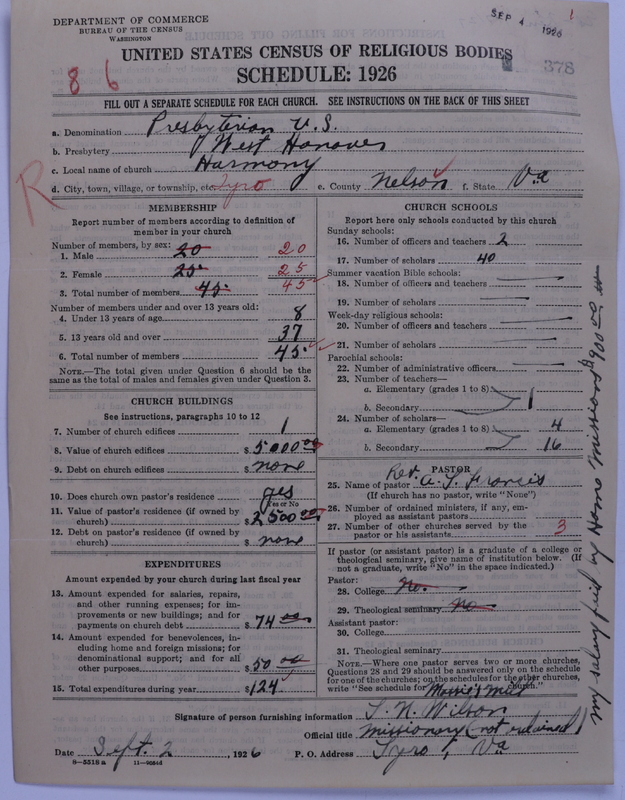 DEPARTMENT OF COMMERCE
BUREAU OF THE CENSUS
WASHINGTON
SEP 4 1926
1
UNITED STATES CENSUS OF RELIGIOUS BODIES
SCHEDULE: 1926
8 6
378
FILL OUT A SEPARATE SCHEDULE FOR EACH CHURCH. SEE INSTRUCTIONS ON THE BACK OF THIS SHEET
a. Denomination Presbyterian U.S.
b. Presbytery West Hanover
c. Local name of church Harmony
d. City, town, village, or township, etc. Tyro e. County Nelson f. State Va
R
MEMBERSHIP
Report number of members according to definition of
member in your church
Number of members, by sex:
1. Male 20 20
2. Female 25 25
3. Total number of members 45 45
Number of members under and over 13 years old:
4. Under 13 years of age 8
5. 13 years old and over 37
6. Total number of members 45
NOTE.—The total given under Question 6 should be the
same as the total of males and females given under Question 3.
CHURCH BUILDINGS
See instructions, paragraphs 10 to 12
7. Number of church edifices 1
8. Value of church edifices $ 5000 00
9. Debt on church edifices $ none
10. Does church own pastor's residence yes
Yes or No
11. Value of pastor's residence (if owned by
church) $ 2500 00
12. Debt on pastor's residence (if owned by
church) $ none
EXPENDITURES
Amount expended by your church during last fiscal year
13. Amount expended for salaries, repairs,
and other running expenses; for im-
provements or new buildings; and for
payments on church debt $ 74 00
14. Amount expended for benevolences, in-
cluding home and foreign missions; for
denominational support; and for all
other purposes $ 50 00
15. Total expenditures during year $ 124
CHURCH SCHOOLS
Report here only schools conducted by this church
Sunday schools:
16. Number of officers and teachers 2
17. Number of scholars 40
Summer vacation Bible schools:
18. Number of officers and teachers
19. Number of scholars
Week-day religious schools:
20. Number of officers and teachers
21. Number of scholars
Parochial schools:
22. Number of administrative officers
23. Number of teachers—
a. Elementary (grades 1 to 8)
b. Secondary 1
24. Number of scholars—
a. Elementary (grades 1 to 8) 4
b. Secondary 16
PASTOR
25. Name of pastor Rev. A. J. Francis
(If church has no pastor, write "None")
26. Number of ordained ministers, if any, em-
ployed as assistant pastors
27. Number of other churches served by the
pastor or his assistants 3
If pastor (or assistant pastor) is a graduate of a college or
theological seminary, give name of institution below. (If
not a graduate, write "No" in the space indicated.)
Pastor:
28. College No.
29. Theological seminary No
Assistant pastor:
30. College
31. Theological seminary
NOTE.—Where one pastor serves two or more churches,
Questions 28 and 29 should be answered only on the schedule
for one of the churches; on the schedules for the other churches,
write "See schedule for Church."
Signature of person furnishing information T. N. Wilson
Official title missionary (not ordained)
Date Sept. 2, 1926 P. O. Address Tyro, Va
8—5518 a
my salary paid by Home missions $900.00